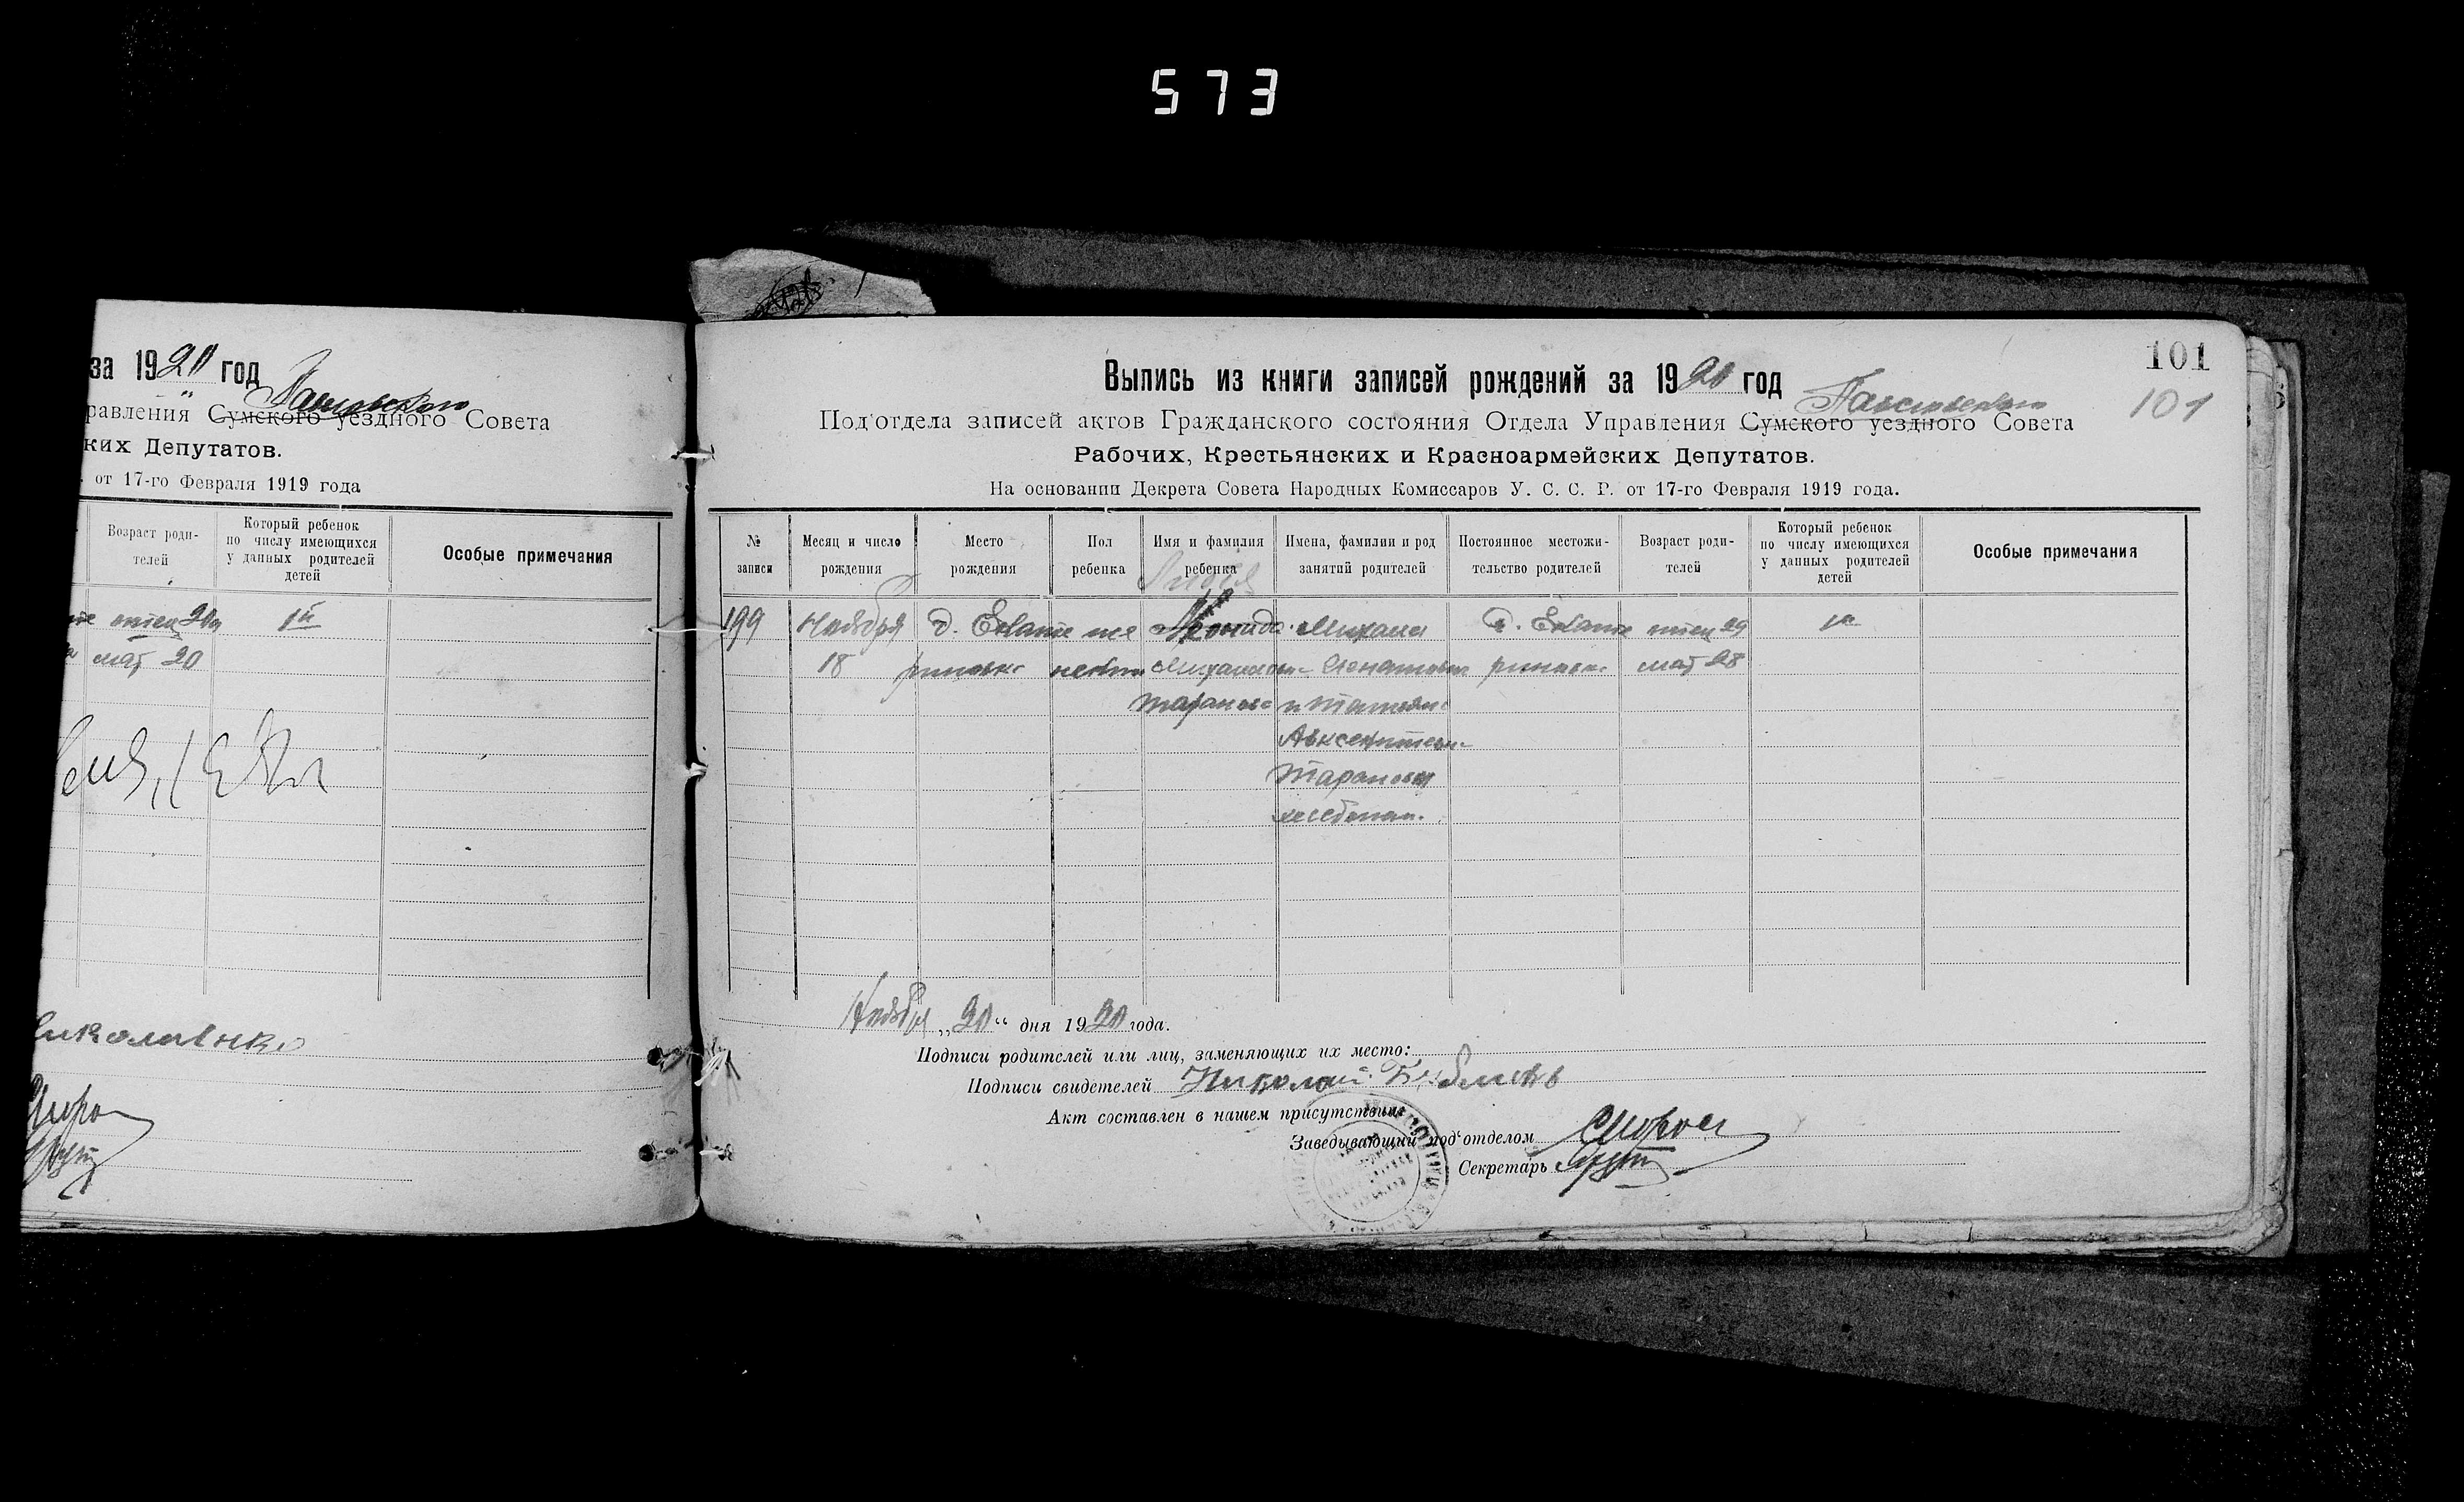 573
за 1920 год
равления Сумского уездного Совета
ких Депутатов.
. от 17-го Февраля 1919 года
Возраст роди-
телей
Который ребенок
по числу имеющихся
у данных родителей
детей
Особые примечания
отец
1й
мат 20
101
101
Выпись из книги записей рождений за 1920 год
Под'отдела записей актов Гражданского состояния Отдела Управления Сумского уездного Совета
Рабочих, Крестьянских и Красноармейских Депутатов.
На основании Декрета Совета Народных Комиссаров У. С. С. Р. от 17-го Февраля 1919 года.
№
записи
Месяц и число
рождения
Место
рождения
Пол
ребенка
Имя и фамилия
ребенка
Имена, фамилии и род
занятий родителей
Постоянное местожи-
тельство родителей
Возраст роди-
телей
Который ребенок
по числу имеющихся
у данных родителей
детей
Особые примечания
199
Ноября
18
д. Екате
риновк
же
нский
Лидия
Михаил
Игнатов
и Татьян
Авксентьев
Тарановы
хлебопаш.
д. Екате
риновк
отец 29
мат 28
Ноября „20“ дня 1920 года.
Подписи родителей или лиц, заменяющих их место:
Подписи свидетелей Николай
Акт составлен в нашем присутствии:
Заведывающий под'отделом
Секретарь